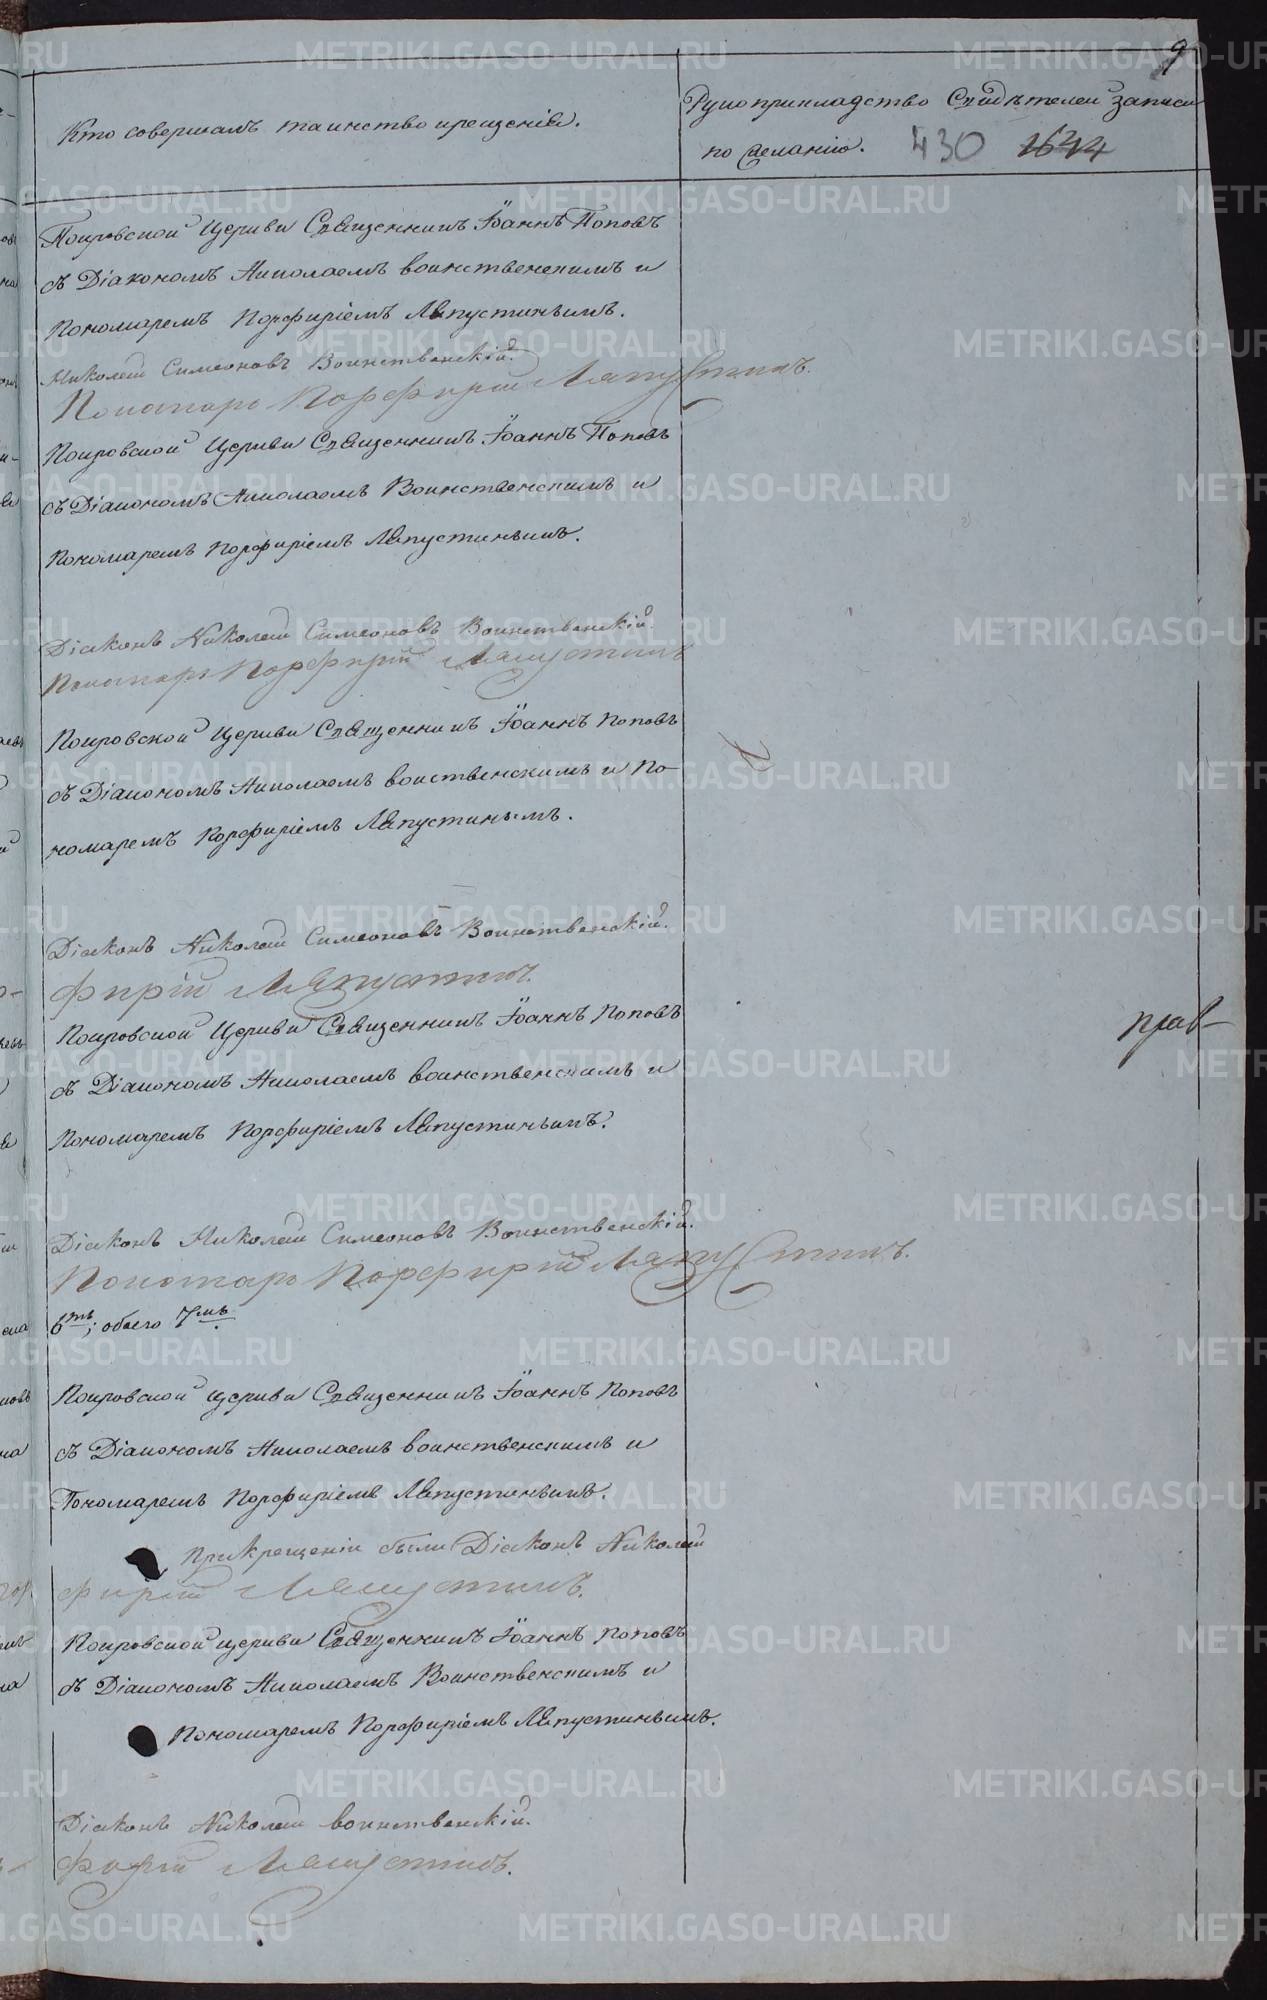 9
Кто совершалъ таинство крещенія.
Рукоприкладство Свидѣтелей записи
по желанію. 430 1644
Покровской Церкви Священникъ Іоаннъ Поповъ
съ Діакономъ Николаемъ воинственскимъ и
Пономаремъ Порфиріемъ Ляпустинымъ.
Николай Симеоновъ Воинственскій.
Пономарь Порфирій Ляпустинъ.
Покровской Церкви Священникъ Іоаннъ Поповъ
съ Діакономъ Николаемъ Воинственскимъ и
Пономаремъ Порфиріемъ Ляпустинымъ.
Діаконъ Николай Симеоновъ Воинственскій.
Пономарь Порфирій Ляпустинъ
Покровской Церкви Священникъ Іоаннъ Поповъ
съ Діакономъ Николаемъ воиственскимъ и По-
номаремъ Порфиріемъ Ляпустинымъ.
Діаконъ Николай Симеоновъ Воинственскій.
фирій Ляпустинъ.
Покровской Церкви Священникъ Іоаннъ Поповъ
прав-
съ Діакономъ Николаемъ воинственскимъ и
Пономаремъ Порфиріемъ Ляпустинымъ.
Діаконъ Николай Симеоновъ Воинственскій.
Пономарь Порфирій Ляпустинъ.
6ть; обоего 7мь.
Покровской Церкви Священникъ Іоаннъ Поповъ
съ Діакономъ Николаемъ воинственскимъ и
Пономаремъ Порфиріемъ Ляпустинымъ.
При крещеніи были Діаконъ Николай
фирій Ляпустинъ.
Покровской церкви Священникъ Іоаннъ Поповъ
съ Діакономъ Николаемъ Воинственскимъ и
Пономаремъ Порфиріемъ Ляпустинымъ.
Діаконъ Николай воинственскій.
фирій Ляпустинъ.